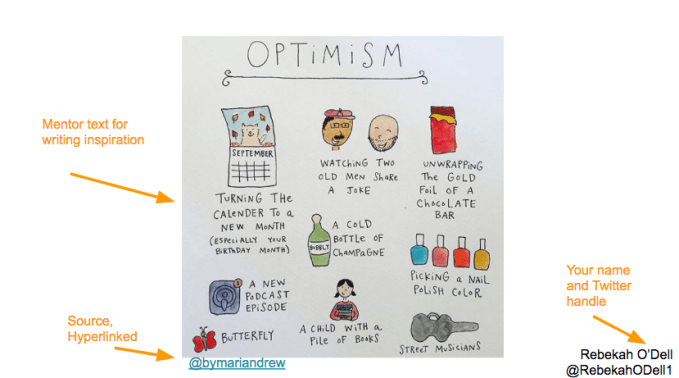 OPTIMISM
Mentor text for
writing inspiration
SEPTEMBER
TURNING THE
CALENDER TO a
NEW MONTH
(ESPECIALLY YOUR
BIRTHDAY MONTH)
WATCHING TWO
OLD MEN SHARE
A JOKE
UNWRAPPING
THE GOLD
FOIL OF A
CHOCOLATE
BAR
BUBBLY
A COLD
BOTTLE OF
CHAMPAGNE
PICKING a NAIL
POLISH COLOR
A NEW
PODCAST
EPISODE
A CHILD WITH a
PILE OF BOOKS
STREET MUSICIANS
BUTTERFLY
Source,
Hyperlinked
@bymariandrew
Your name
and Twitter
handle
Rebekah O'Dell
@RebekahODell1